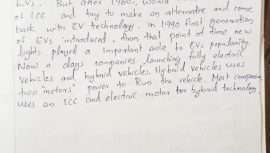 EVs. But after 1960s, world
of ICC and try to make an alternative and come
back with EV technology, in 1990 final generation
of EVs introduced, from that point of time new
lights played a important role to EVs popularity.
Now a days companies launching fully electric
vehicles and hybrid vehicles. Hybrid vehicles uses
two "motors" power to Run the vehicle. Most companies
uses an ICC and electric motor for hybrid technology.